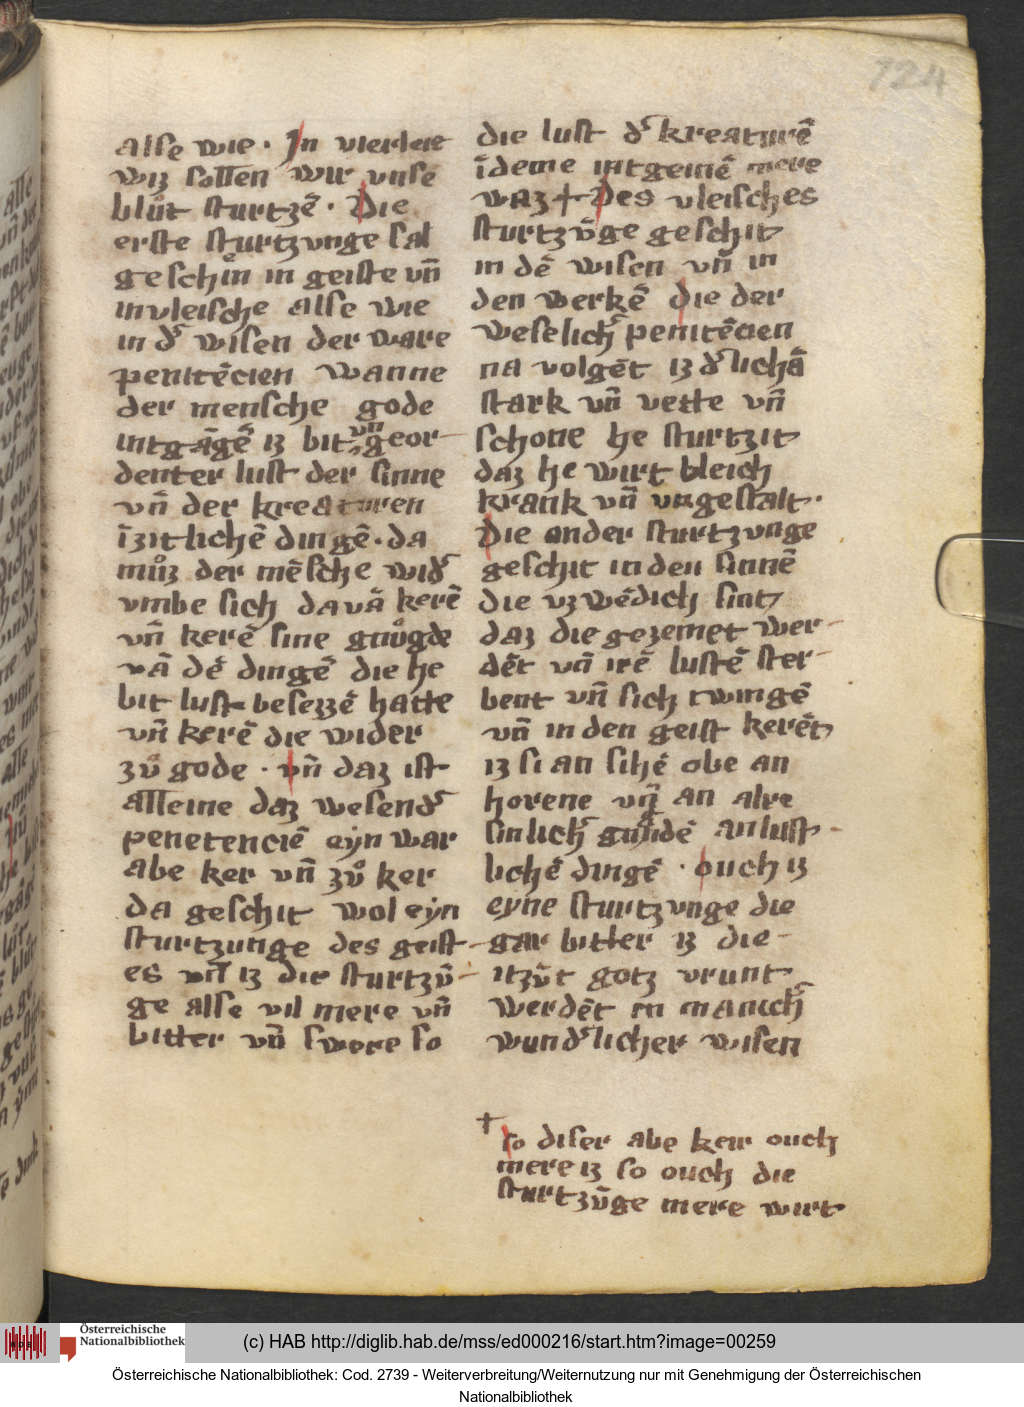 124
alse wie · Jn vierleie
wiz sollen wir vnse
blůt sturtzē · Die
erste sturtzvnge sal
geschin in geiste vn̄
in vleische alse wie
in d͛ wisen der ware
penitēcien wanne
der mensche gode
intgāgē iz bit vn̄geor-
denter lust der sinne
vn̄ der kreaturen
īzitlichē dingē · da
můz der mēsche wid͛
vmbe sich da vā kerē
vn̄ kerē sine gnůgde
vā dē dingē die he
bit lust besezzē hatte
vn̄ kerē die wider
zů gode · vn̄ daz ist
alleine daz wesend͛
penetenciē eyn war
abe ker vn̄ zů ker
da geschit wol eyn
sturtzunge des geist-
es vn̄ iz die sturtzū-
ge alse vil mere vn̄
bitter vn̄ swere so
die lust d͛ kreaturē
īdeme intgeinē mere
waz + Des vleisches
sturtzūge geschit
in dē wisen vn̄ in
den werkē die der
weselich͛ penitēcien
na volgēt iz d͛ lichā
stark vn̄ vette vn̄
schone he sturtzit
daz he wirt bleich
krank vn̄ vngestalt ·
Die ander sturtzvnge
geschit in den sinnē
die vzwēdich sint
daz die gezemet wer-
dēt vn̄ irē lustē ster-
bent vn̄ sich twingē
vn̄ in den geist kerēt
iz si an sihē obe an
horene vn̄ an alre
sinlich͛ gnůdē an lust-
lichē dingē · ouch iz
eyne sturtzvnge die
gar bitter iz die-
itzūt gotz vrunt
werdēt in manich͛
wund͛licher wisen
+ so diser abe keir ouch
mere iz so ouch die
sturtzūge mere wirt
(c) HAB http://diglib.hab.de/mss/ed000216/start.htm?image=00259
Österreichische
Nationalbibliothek
Österreichische Nationalbibliothek: Cod. 2739 - Weiterverbreitung/Weiternutzung nur mit Genehmigung der Österreichischen
Nationalbibliothek